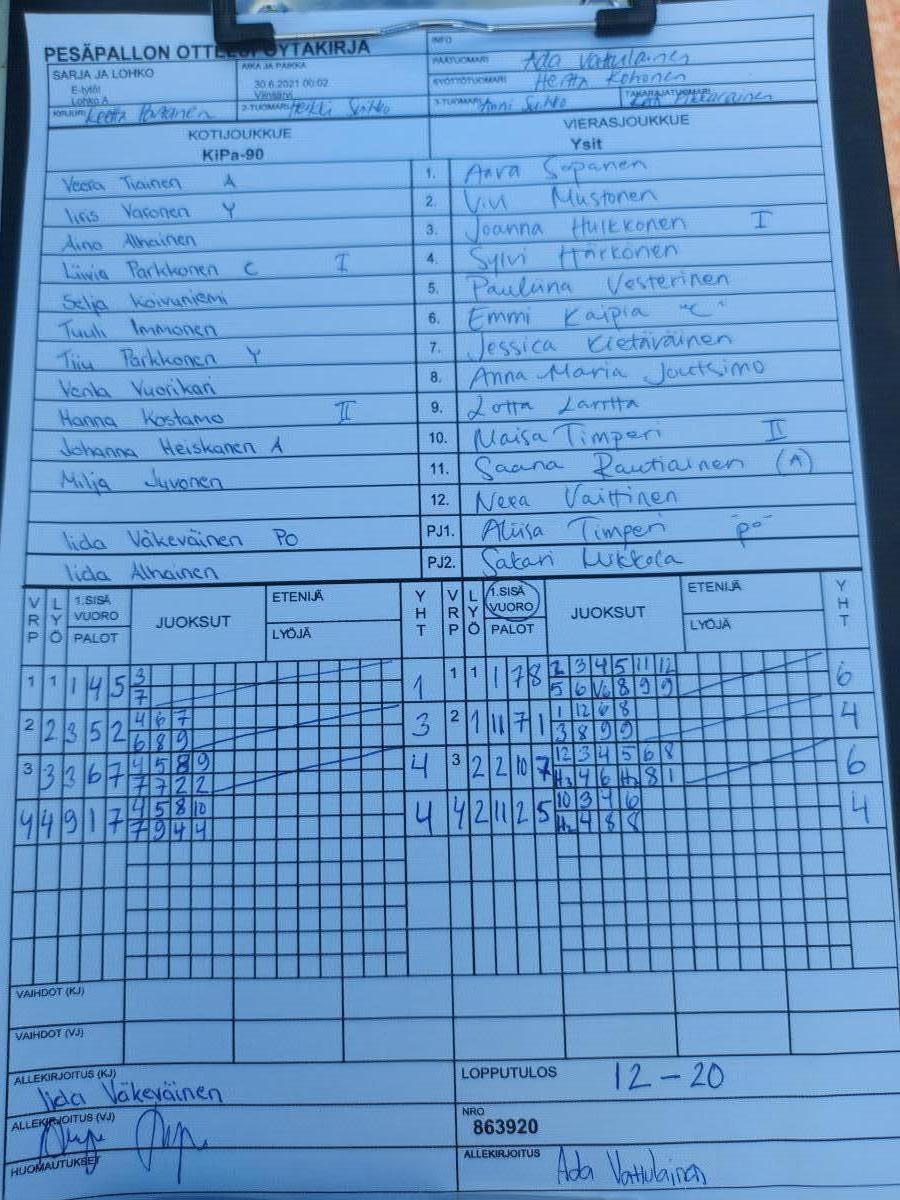 PESÄPALLON OTTELUPÖYTÄKIRJA
INFO
SARJA JA LOHKO
E-tytöt
Lohko A
AIKA JA PAIKKA
30.6.2021 00:02
PÄÄTUOMARI Ada Vattulainen
SYÖTTÖTUOMARI Hertta Kohonen
KIRJURI
2-TUOMARI
3-TUOMARI Anni
TAKARAJATUOMARI
KOTIJOUKKUE VIERASJOUKKUE
KiPa-90 Ysit
Veera Tiainen A 1. Aava Sopanen
Iiris Varonen Y 2. Vivi Mustonen
Aino Alhainen 3. Joanna Hulkkonen I
Liivia Parkkonen C I 4. Sylvi Härkönen
Selja Koivuniemi 5. Pauliina Vesterinen
Tuuli Immonen 6. Emmi Kaipia "C"
Tiiu Parkkonen Y 7. Jessica Kietäväinen
Venla Vuorikari 8. Anna-Maria Joutsimo
Hanna Kostamo II 9. Lotta Larttta
Johanna Heiskanen A 10. Maisa Timperi II
Milja Juvonen 11. Saana Rautiainen (A)
12. Neea Vaittinen
Iida Väkeväinen PO PJ1. Aliisa Timperi "po"
Iida Alhainen PJ2. Sakari Liikkola
VRP LYÖ 1.SISÄ VUORO PALOT JUOKSUT ETENIJÄ LYÖJÄ YHT VRP LYÖ 1.SISÄ VUORO PALOT JUOKSUT ETENIJÄ LYÖJÄ YHT
1 1 1 4 5 3 1 1 1 1 7 8 2 3 4 5 11 12 6
7 5 6 V6 8 9 9
2 2 3 5 2 4 6 7 3 2 1 11 7 1 1 12 6 8 4
6 8 9 3 8 9 9
3 3 3 6 7 4 5 8 9 4 3 2 2 10 7 12 3 4 5 6 8 6
7 7 2 2 H2 4 6 H2 8 1
4 4 9 1 7 4 5 8 10 4 4 2 11 2 5 10 3 4 6 4
7 9 4 4 H2 4 8 8
VAIHDOT (KJ)
VAIHDOT (VJ)
ALLEKIRJOITUS (KJ) Iida Väkeväinen
LOPPUTULOS 12-20
ALLEKIRJOITUS (VJ)
NRO
863920
HUOMAUTUKSET
ALLEKIRJOITUS Ada Vattulainen